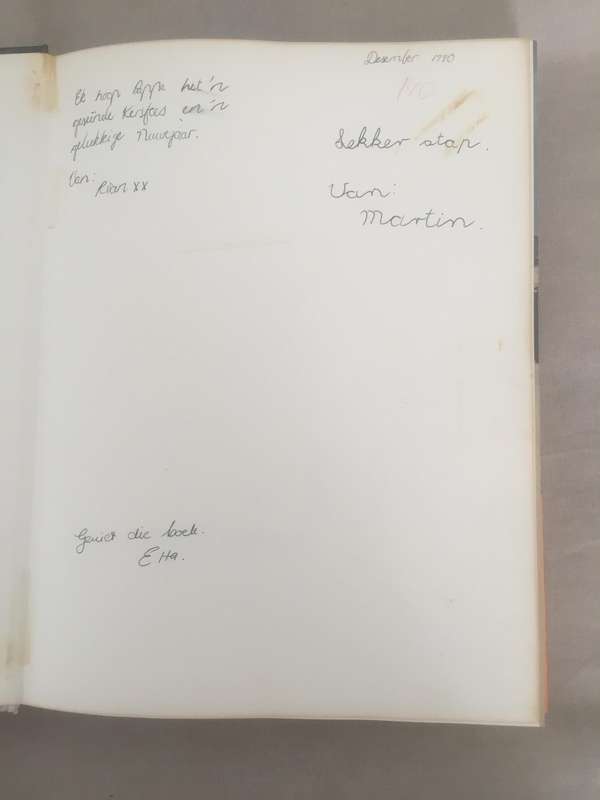 Desember 1990
Ek hoop Pappa het 'n
gesëinde Kersfees en 'n
gelukkige Nuwejaar.
Van:
Rian xx
NO
Lekker stap.
Van:
Martin.
Geniet die boek.
Etta.